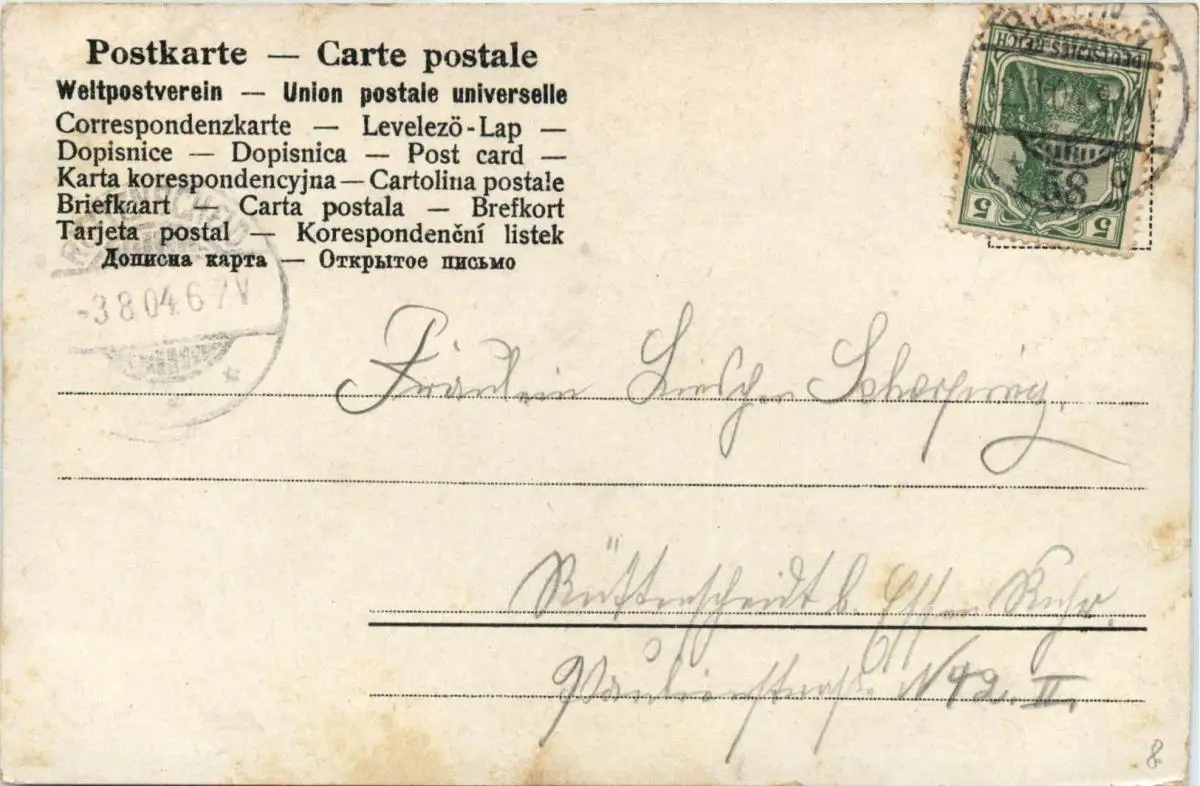 Postkarte — Carte postale
Weltpostverein — Union postale universelle
Correspondenzkarte — Levelező-Lap —
Dopisnice — Dopisnica — Post card —
Karta korespondencyjna — Cartolina postale
Briefkaart — Carta postala — Brefkort
Tarjeta postal — Korespondenční listek
Дописна карта — Открытое письмо
DEUTSCHES REICH
5 5
58
-3.8.04. 6-7V
Fräulein Lieschen
Rüttenscheidt b. Essen Ruhr.
Paulinenstraße N 42. II.
8